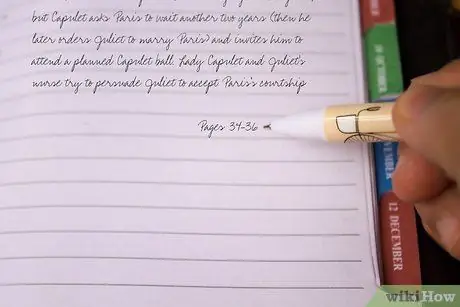 but Capulet asks Paris to wait another two years (then he
later orders Juliet to marry Paris) and invites him to
attend a planned Capulet ball. Lady Capulet and Juliet's
nurse try to persuade Juliet to accept Paris's courtship
Pages 34-36
10 OCTOBER
NOVEMBER
12 DECEMBER
wikiHow